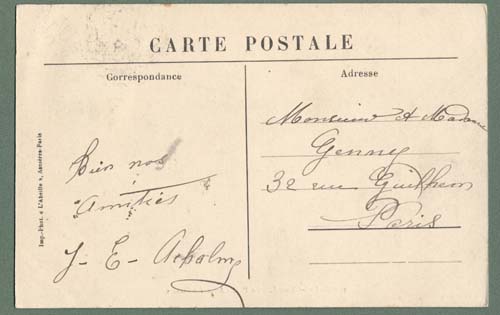 CARTE POSTALE
Correspondance
Adresse
Imp.-Phot. « L'Abeille », Asnières-Paris
Bien nos
amitiés
J - E -
Monsieur & Madame
Genney
32 rue Guilhem
Paris